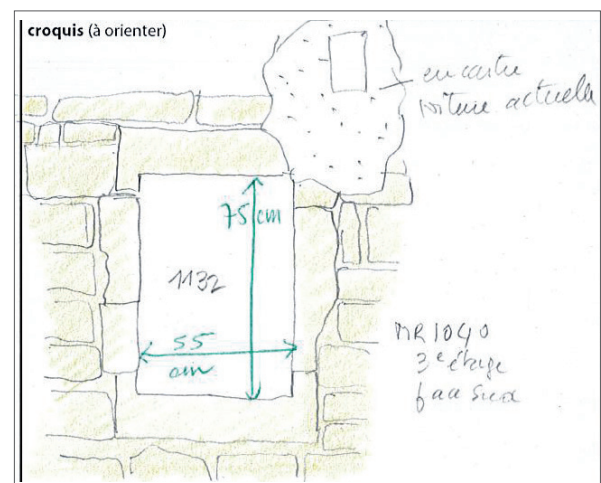 croquis (à orienter)
encastre
toiture actuelle
75 cm
1132
55
cm
MR 1040
3e étage
face sud